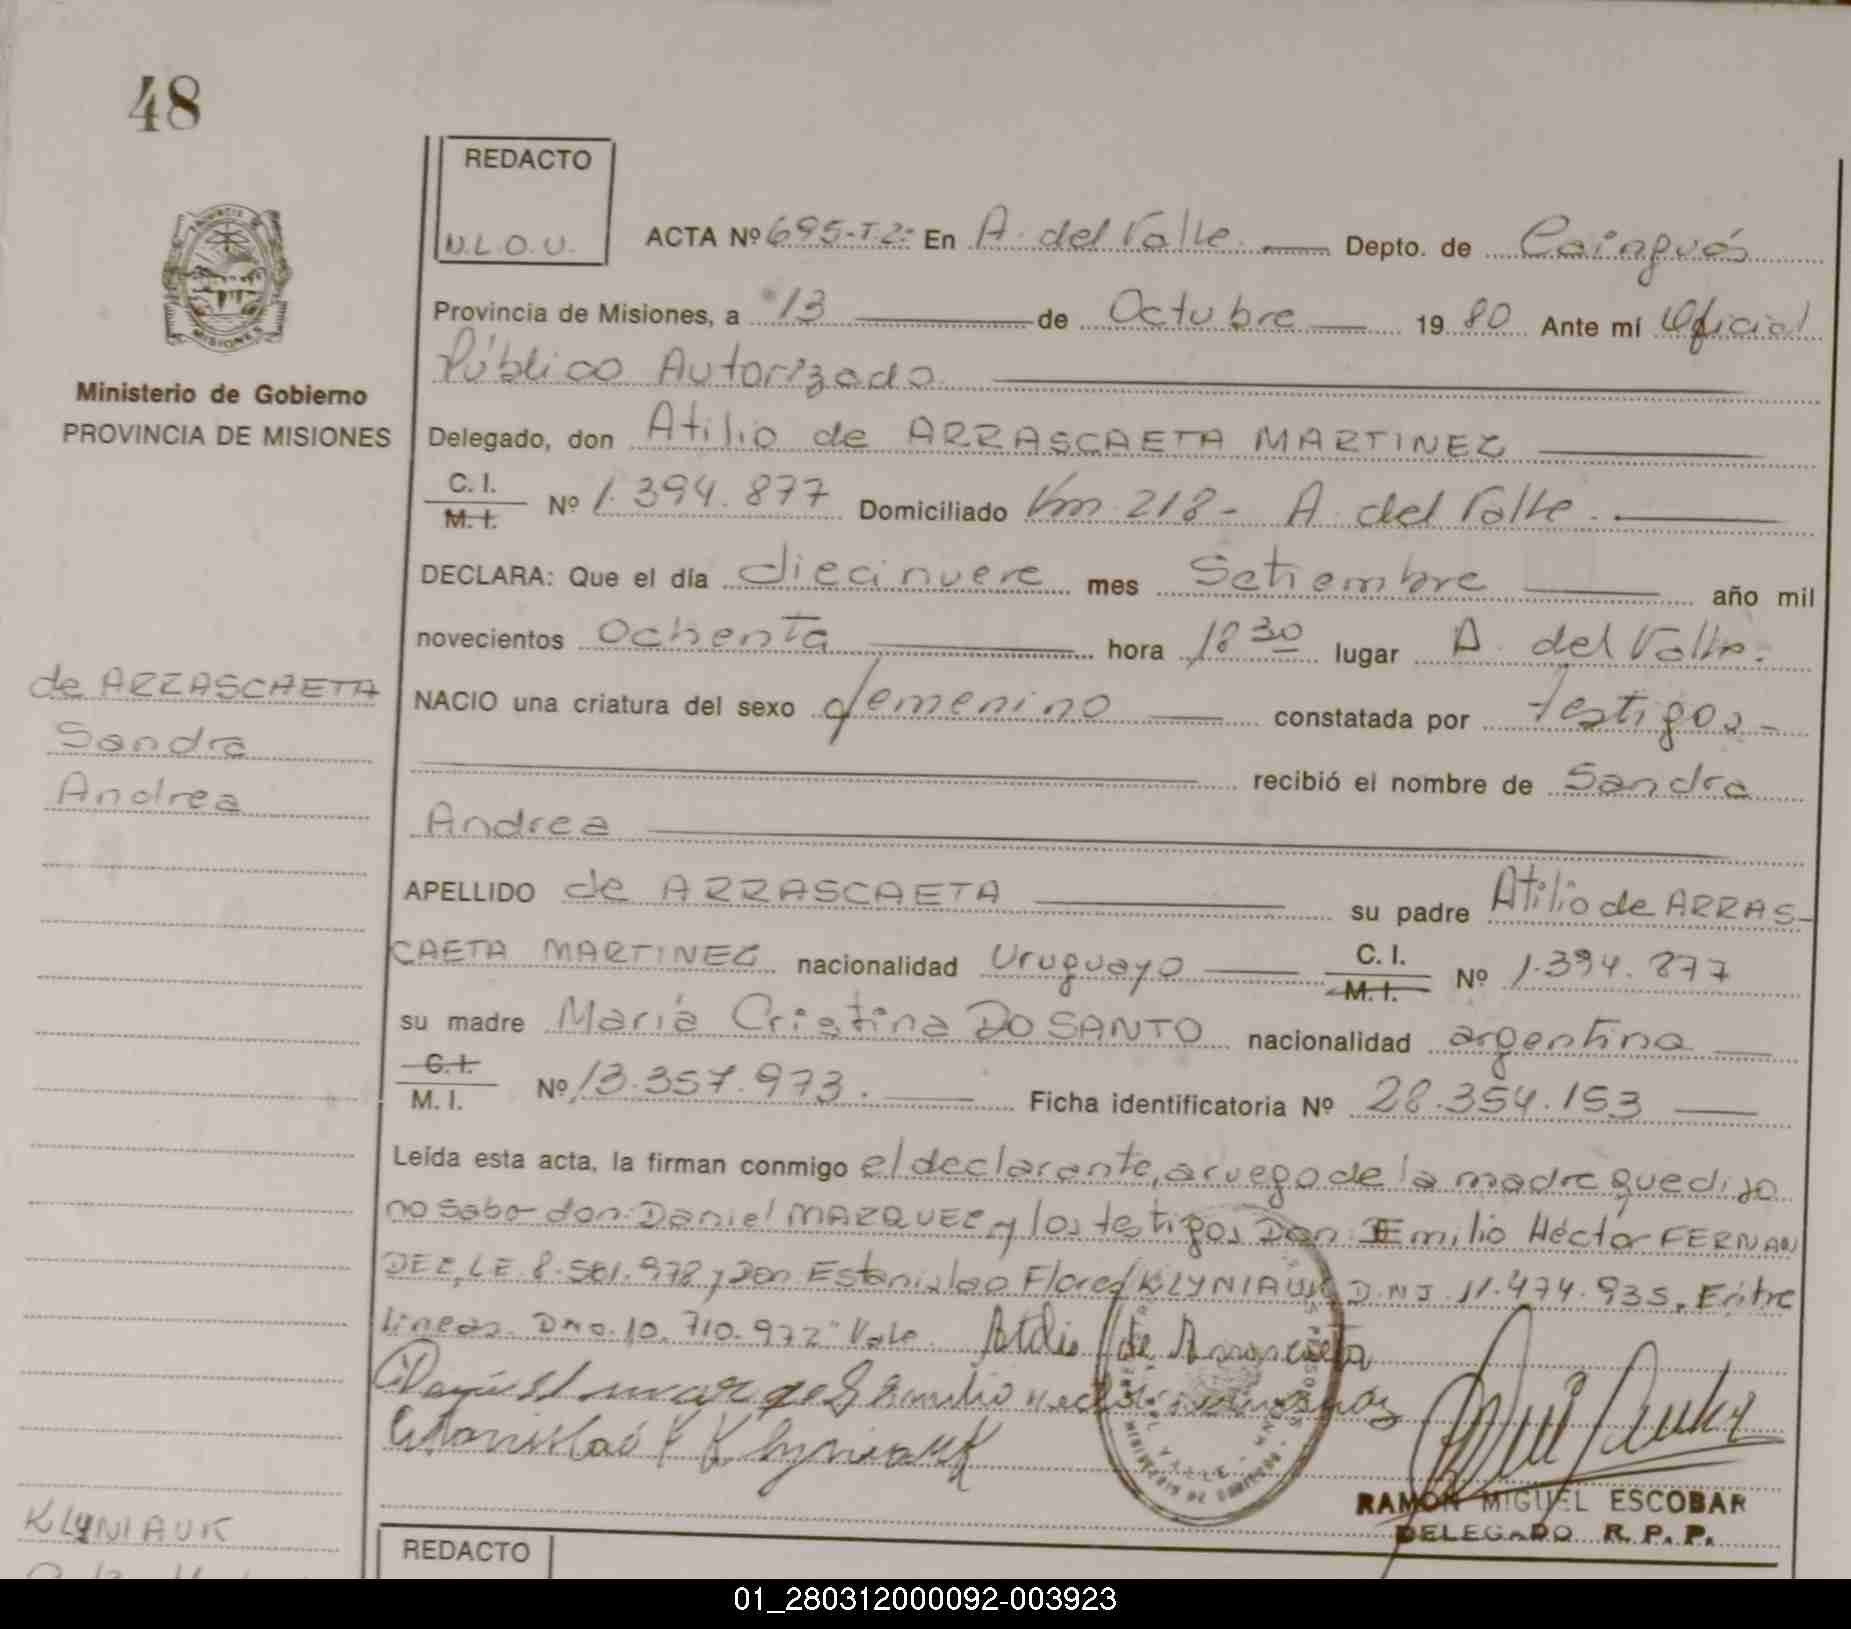 48
REDACTO
N.L.O.U.
ACTA Nº 695-T.2º En A. del Valle Depto. de Cainguás
Provincia de Misiones, a 13 de Octubre 1980 Ante mí Oficial
Público Autorizado
MISIONES
Ministerio de Gobierno
PROVINCIA DE MISIONES
Delegado, don Atilio de ARRASCAETA MARTINEZ
C. I. M. I. Nº 1.394.877 Domiciliado Km 218- A. del Valle.
DECLARA: Que el día diecinueve mes Setiembre año mil
novecientos Ochenta hora 18 30 lugar A. del Valle.
de ARRASCAETA
Sandra
Andrea
NACIO una criatura del sexo femenino constatada por testigos-
recibió el nombre de Sandra
Andrea
APELLIDO de ARRASCAETA su padre Atilio de ARRAS-
CAETA MARTINEZ nacionalidad Uruguayo C. I. M. I. Nº 1.394.877
su madre María Cristina DO SANTO nacionalidad argentina
C. I. M. I. Nº 13.357.973. Ficha identificatoria Nº 28.354.153
Leída esta acta, la firman conmigo el declarante, a ruego de la madre que dijo
no saber don Daniel MARQUEZ y los testigos Don Emilio Héctor FERNAN
DEZ, L.E. 8.581.978 y Don Estanislao Flores KLYNIAUK D.N.I. 11.474.935. Entre
lineas. DNI. 10.710.972" Vale. Atilio de Arrascaeta
Daniel marquez Emilio Hector Fernandez
Estanislao F Klyniauk
RAMON MIGUEL ESCOBAR
DELEGADO R. P. P.
KLYNIAUK
REDACTO
01_280312000092-003923